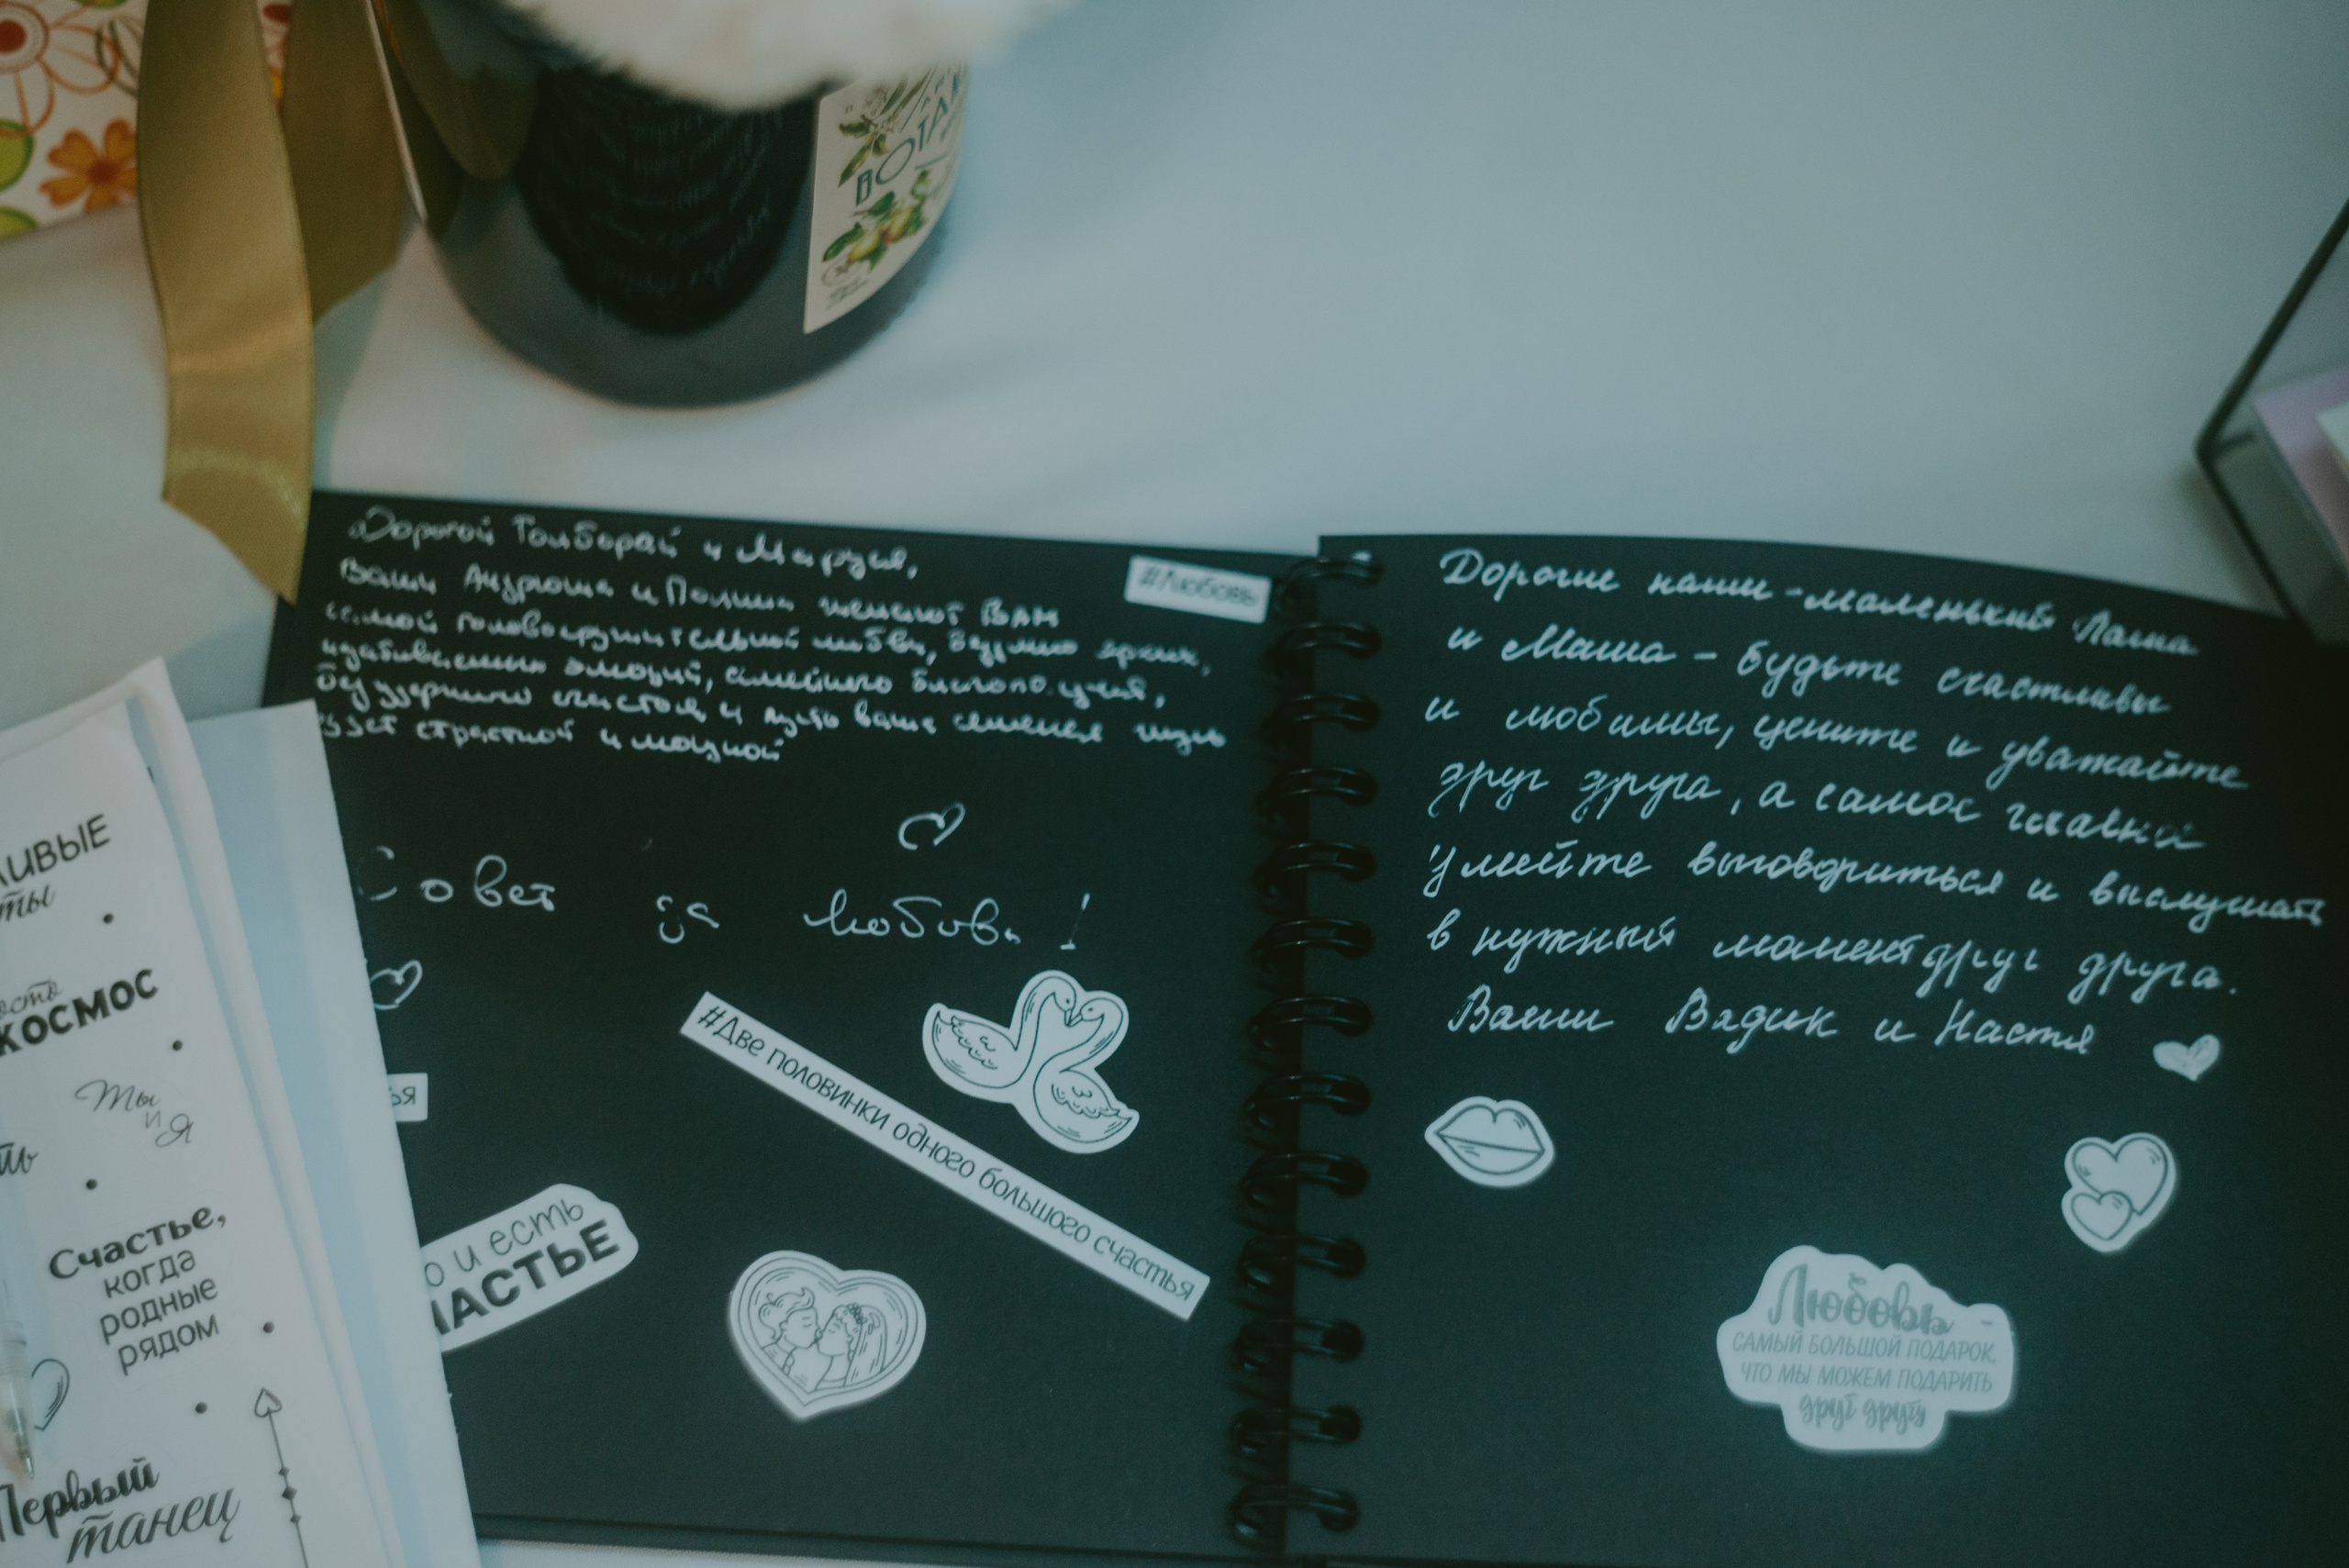 ВОТА
Дорогой Толборай и Маруся,
Ваши Андрюша и Полина желают Вам
самой головокружительной любви, безумно ярких,
эмоций, семейного благополучия,
безудержного счастья и пусть ваша семейная жизнь
будет страстной и мощной
#Любовь
Совет да Любовь!
#Две половинки одного большого счастья
ья
о и есть
ЧАСТЬЕ
Дорогие наши - маленький Паша
и Маша - будьте счастливы
и любимы, цените и уважайте
друг друга, а самое главное
умейте выговориться и выслушать
в нужный момент друг друга.
Ваши Вадик и Настя
Любовь -
САМЫЙ БОЛЬШОЙ ПОДАРОК,
ЧТО МЫ МОЖЕМ ПОДАРИТЬ
друг другу
ЛИВЫЕ
ты
ость
КОСМОС
Ты
и
Я
ть
Счастье,
когда
родные
рядом
Первый
танец